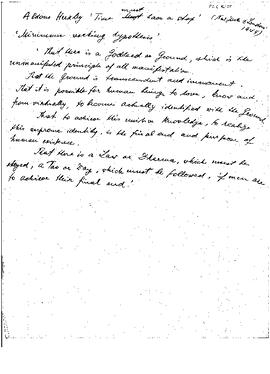 Aldous Huxley 'Time must have a stop' (New York & London
1945)
'Minimum working hypothesis'
'That there is a Godhead or Ground, which is the
unmanifested principle of all manifestation.
That the Ground is transcendent and immanent.
That it is possible for human beings to love, know and,
from virtually, to become actually identified with the Ground.
That to achieve this unitive knowledge, to realize
this supreme identity, is the final end and purpose of
human existence.
That there is a Law or Dharma, which must be
obeyed, a Tao or Way, which must be followed, if men are
to achieve their final end.'